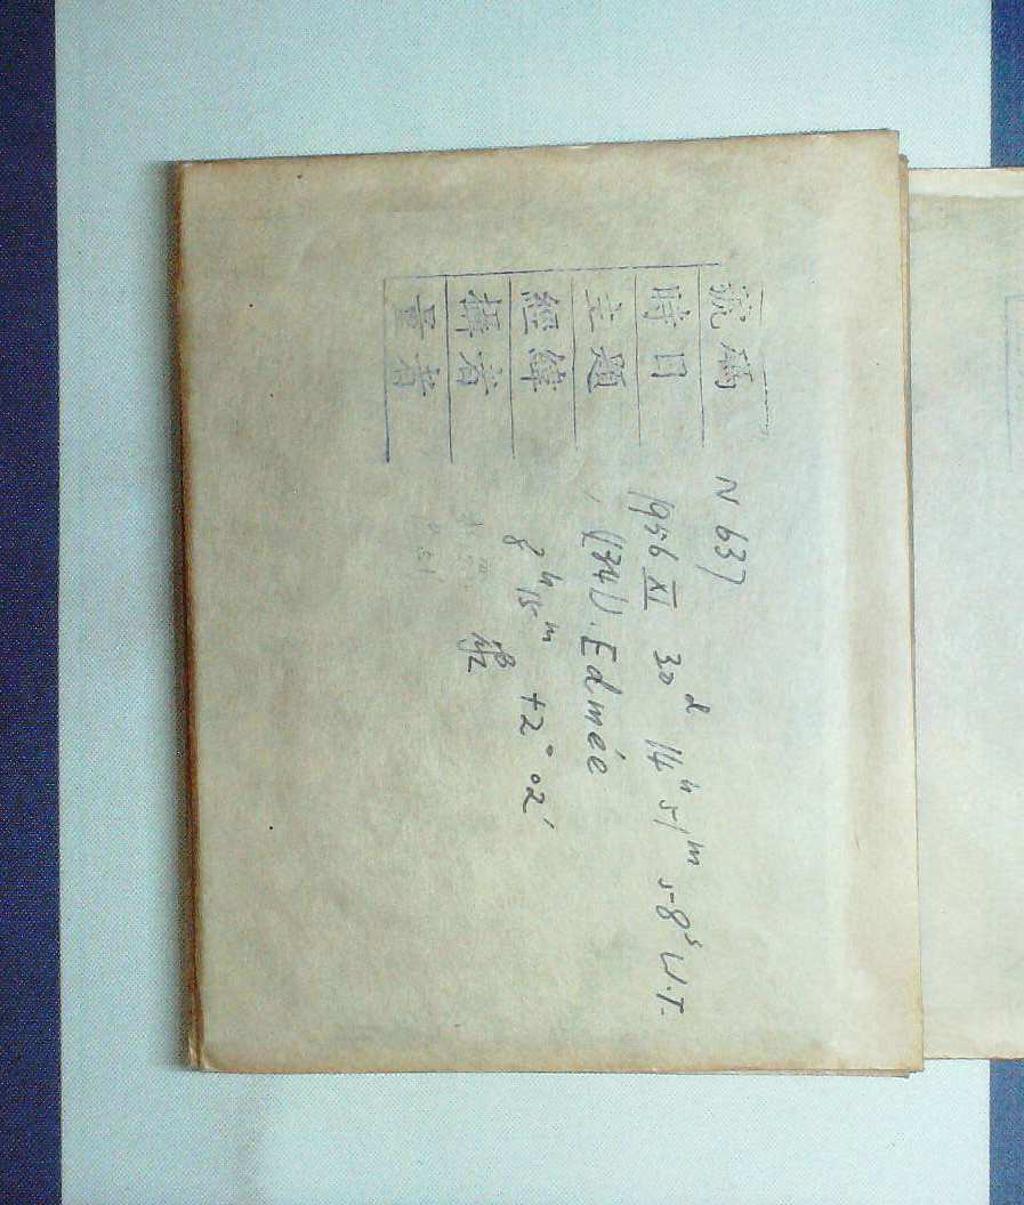 號碼 N 637
時日 1956 XI 30d 14h 51m 58s U.T.
主題 (741). Edmée
經緯 8h 15m +2° 02'
攝者
量者